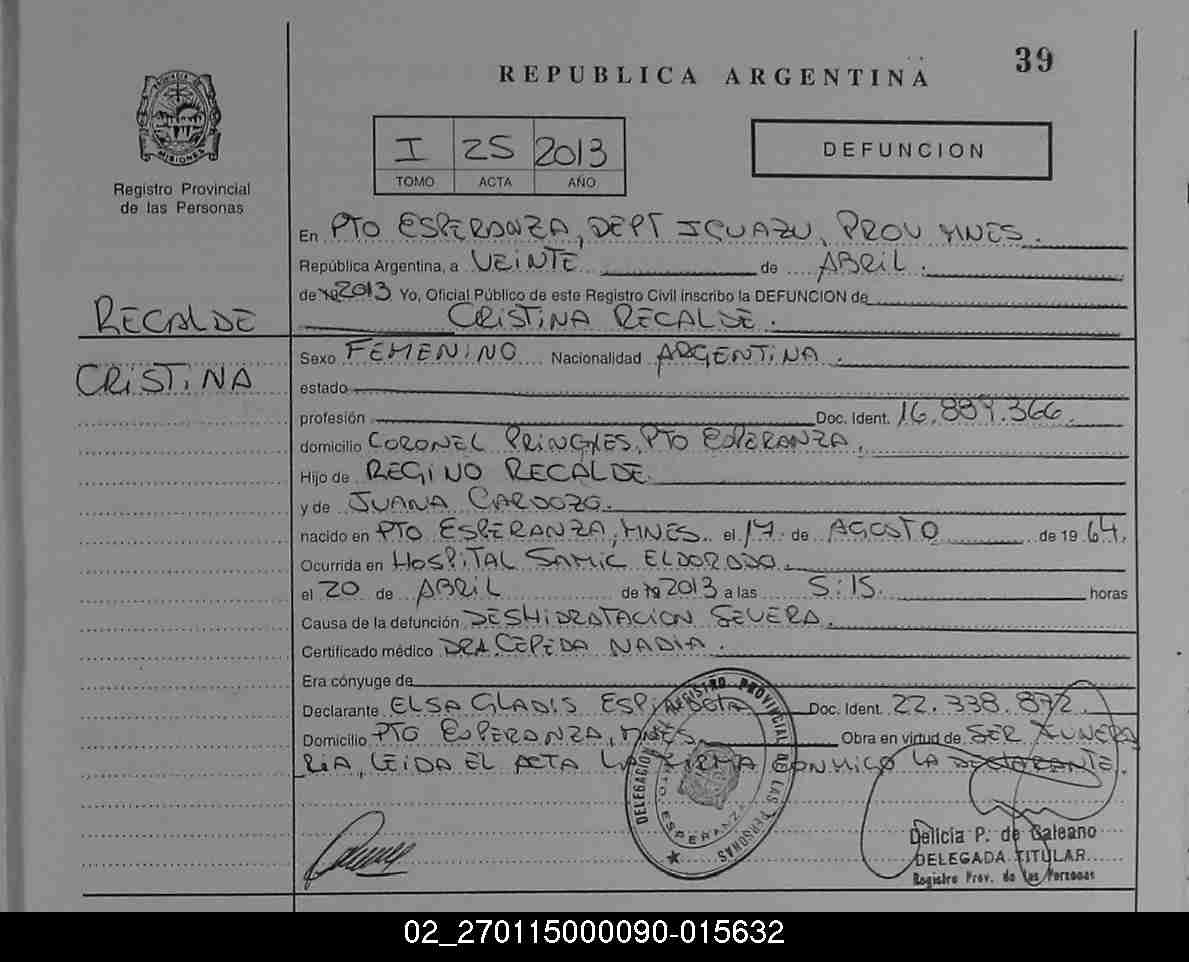 39
REPUBLICA ARGENTINA
PROVINCIA DE MISIONES
Registro Provincial
de las Personas
I 25 2013
TOMO ACTA AÑO
DEFUNCION
En PTO ESPERANZA, DEPT IGUAZU, PROV MNES.
República Argentina, a VEINTE de ABRIL.
de 2013 Yo, Oficial Público de este Registro Civil inscribo la DEFUNCION de
RECALDE
CRISTINA RECALDE.
CRISTINA
Sexo FEMENINO Nacionalidad ARGENTINA.
estado
profesión Doc. Ident. 16.889.366.
domicilio CORONEL PRINGLES, PTO ESPERANZA,
Hijo de REGINO RECALDE.
y de JUANA CARDOZO.
nacido en PTO ESPERANZA, MNES. el 17 de AGOSTO de 19 64.
Ocurrida en HOSPITAL SAMIC ELDORADO.
el 20 de ABRIL de 2013 a las 5:15. horas
Causa de la defunción DESHIDRATACION SEVERA.
Certificado médico DRA. CEPEDA NADIA.
Era cónyuge de
Declarante ELSA GLADIS ESPINDOLA Doc. Ident. 22.338.872.
Domicilio PTO ESPERANZA, MNES. Obra en virtud de SER FUNERA
RIA, LEIDA EL ACTA LA FIRMA CONMIGO LA DECLARANTE.
DELEGACION DEL REGISTRO PROVINCIAL DE LAS PERSONAS
PTO. ESPERANZA
Delicia P. de Galeano
DELEGADA TITULAR
Registro Prov. de las Personas
02_270115000090-015632